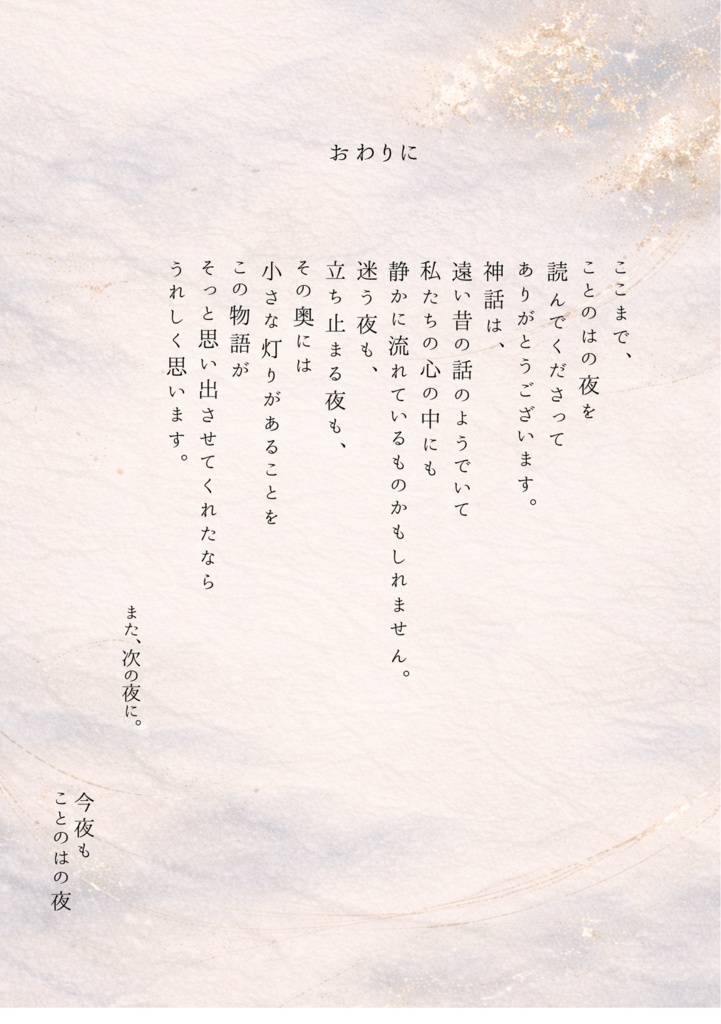 おわりに
ここまで、
ことのはの夜を
読んでくださって
ありがとうございます。
神話は、
遠い昔の話のようでいて
私たちの心の中にも
静かに流れているものかもしれません。
迷う夜も、
立ち止まる夜も、
その奥には
小さな灯りがあることを
この物語が
そっと思い出させてくれたなら
うれしく思います。
また、次の夜に。
今夜も
ことのはの夜